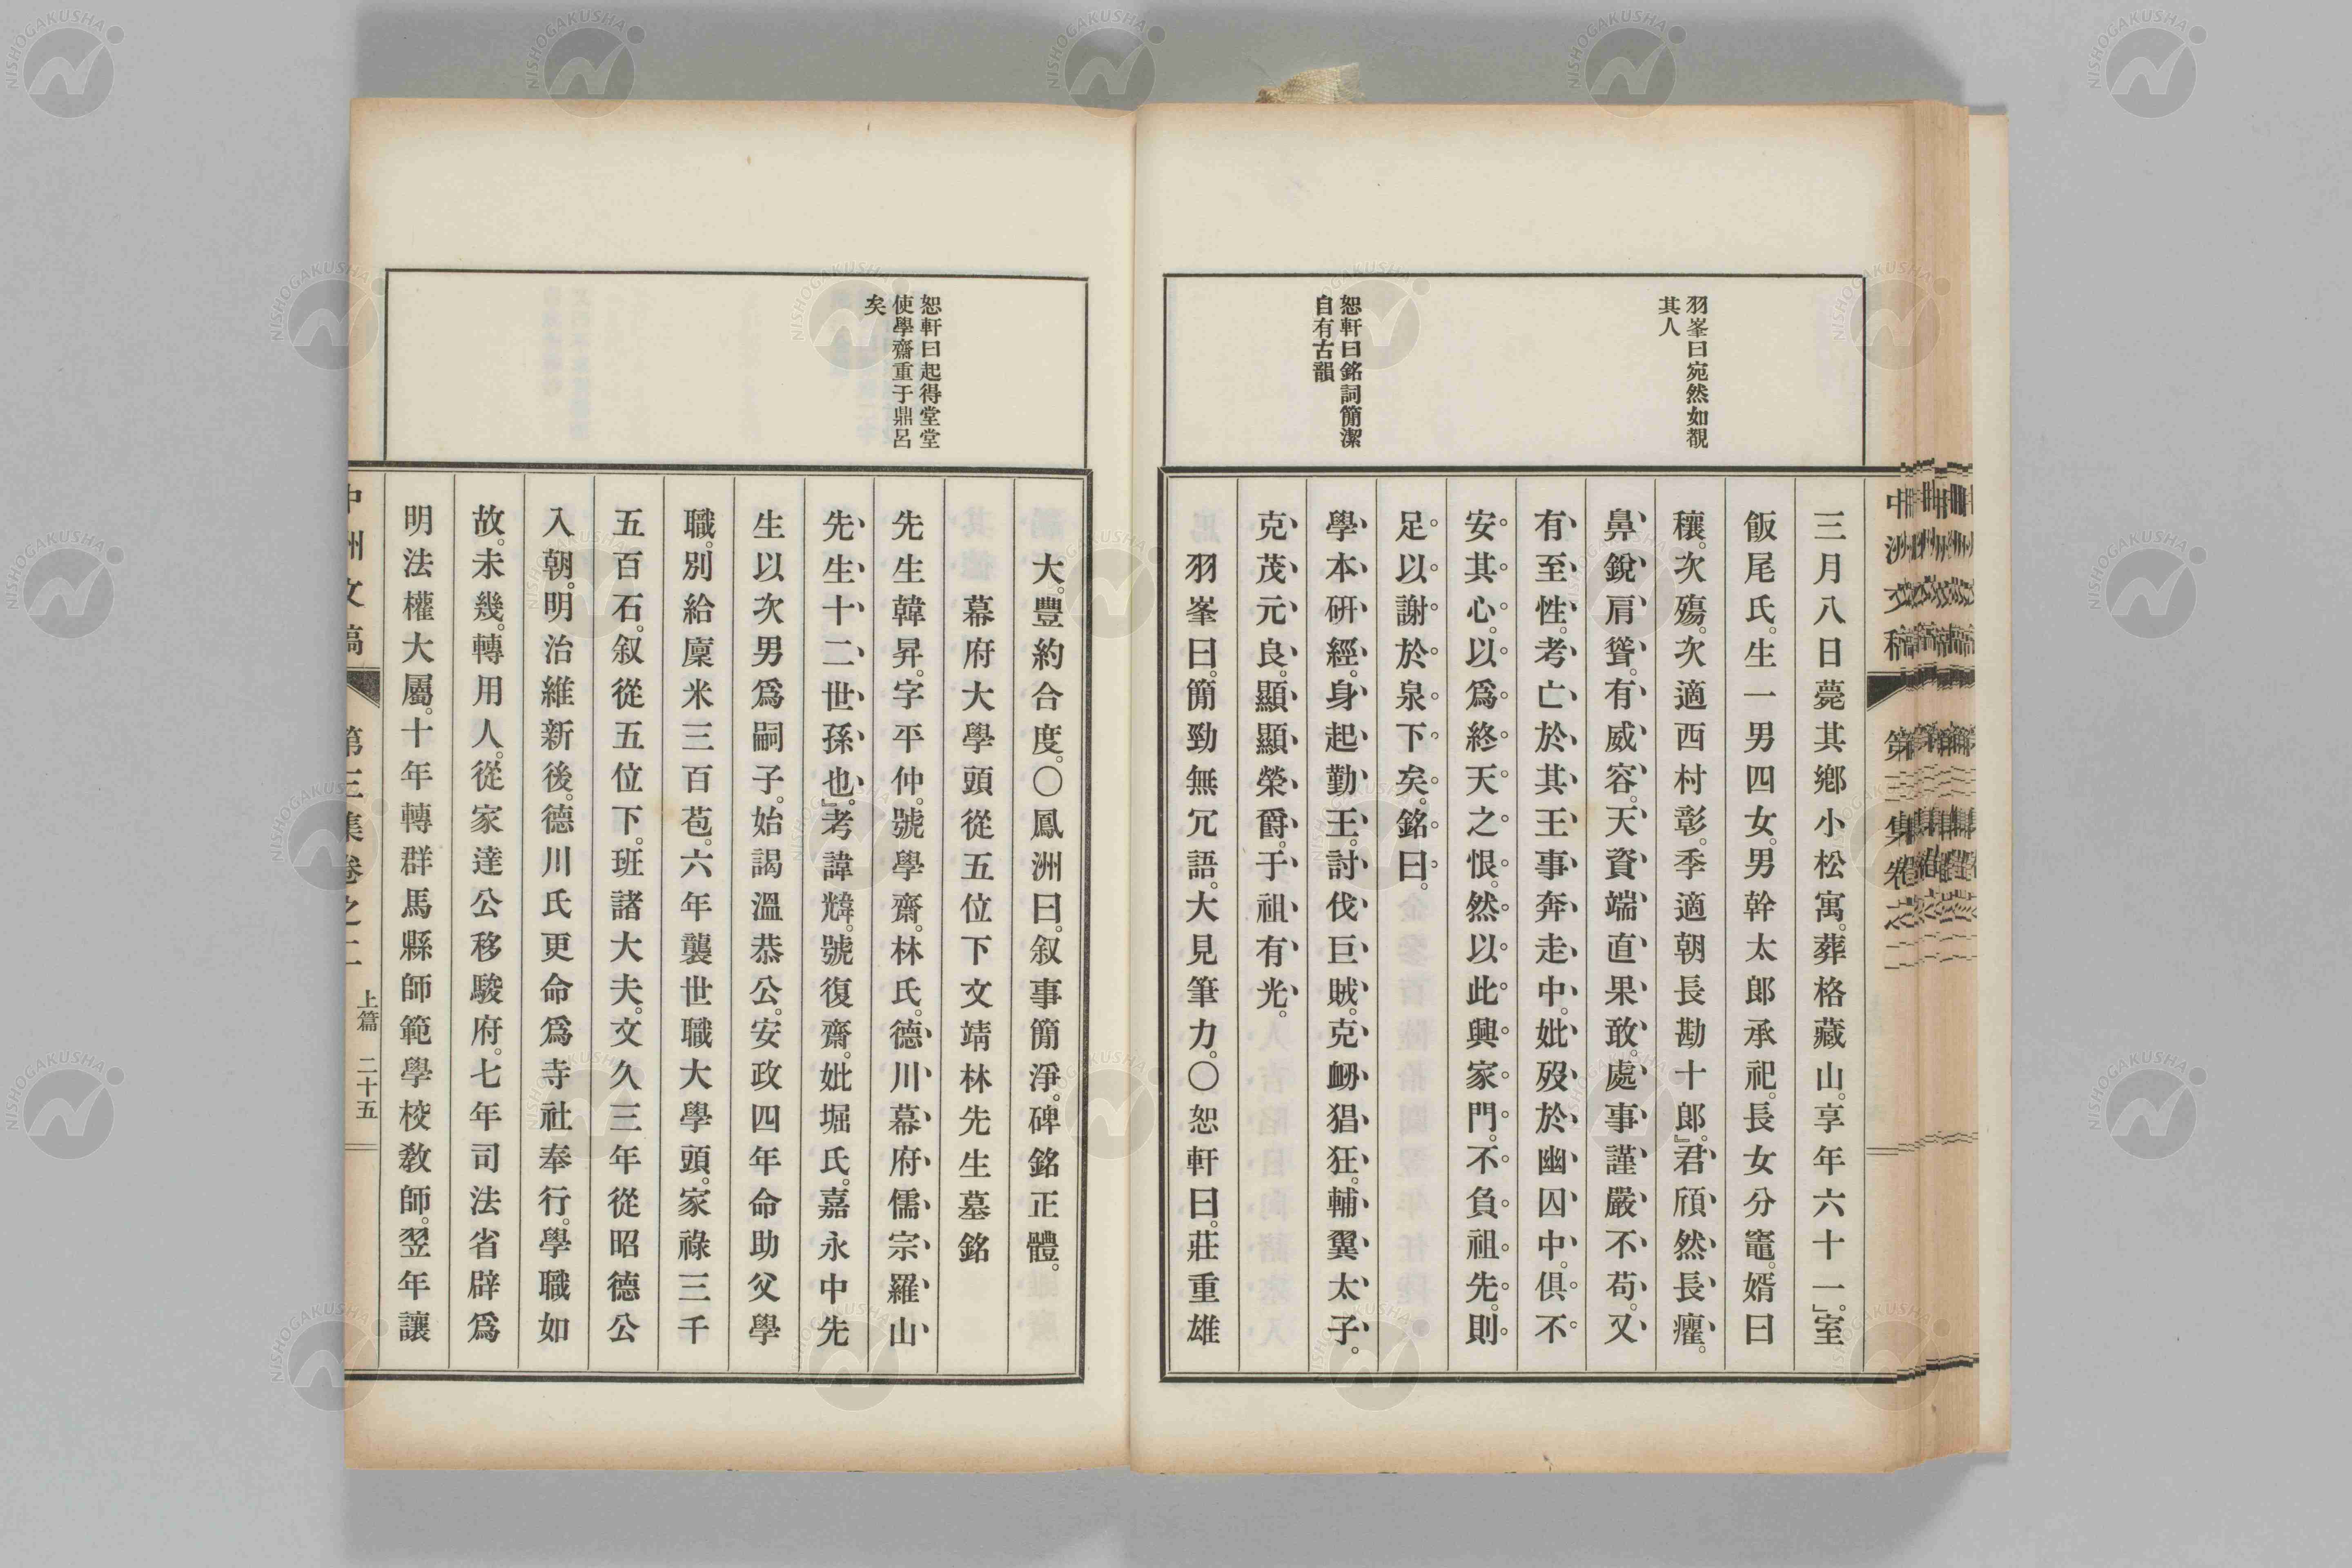 羽峯曰宛然如覩
其人
恕軒曰銘詞簡潔
自有古韻
三月八日薨其鄕小松寓。葬格藏山。享年六十一。』室
飯尾氏。生一男四女。男幹太郞承祀。長女分竈。婿曰
穰。次殤。次適西村彰。季適朝長勘十郞。』君頎然長癯。
鼻銳肩聳。有威容。天資端直果敢。處事謹嚴不苟。又
有至性。考亡於其王事奔走中。妣歿於幽囚中。俱不
安其心。以爲終天之恨。然以此興家門。不負祖先。則
足以謝於泉下矣。銘曰。
學本硏經。身起勤王。討伐巨賊。克衂猖狂。輔翼太子。
克茂元良。顯顯榮爵。于祖有光。
羽峯曰。簡勁無冗語。大見筆力。○恕軒曰。莊重雄
恕軒曰起得堂堂
使學齋重于鼎呂
矣
大。豐約合度。○鳳洲曰。叙事簡淨。碑銘正體。
幕府大學頭從五位下文靖林先生墓銘
先生韓昇。字平仲。號學齋。林氏。德川幕府儒宗羅山
先生十二世孫也。』考諱韑。號復齋。妣堀氏。嘉永中先
生以次男爲嗣子。始謁溫恭公。安政四年命助父學
職。別給廩米三百苞。六年襲世職大學頭。家祿三千
五百石。叙從五位下。班諸大夫。文久三年從昭德公
入朝。明治維新後。德川氏更命爲寺社奉行。學職如
故。未幾。轉用人。從家達公移駿府。七年司法省辟爲
明法權大屬。十年轉群馬縣師範學校敎師。翌年讓
中洲文稿 第三集卷之二 上篇 二十五